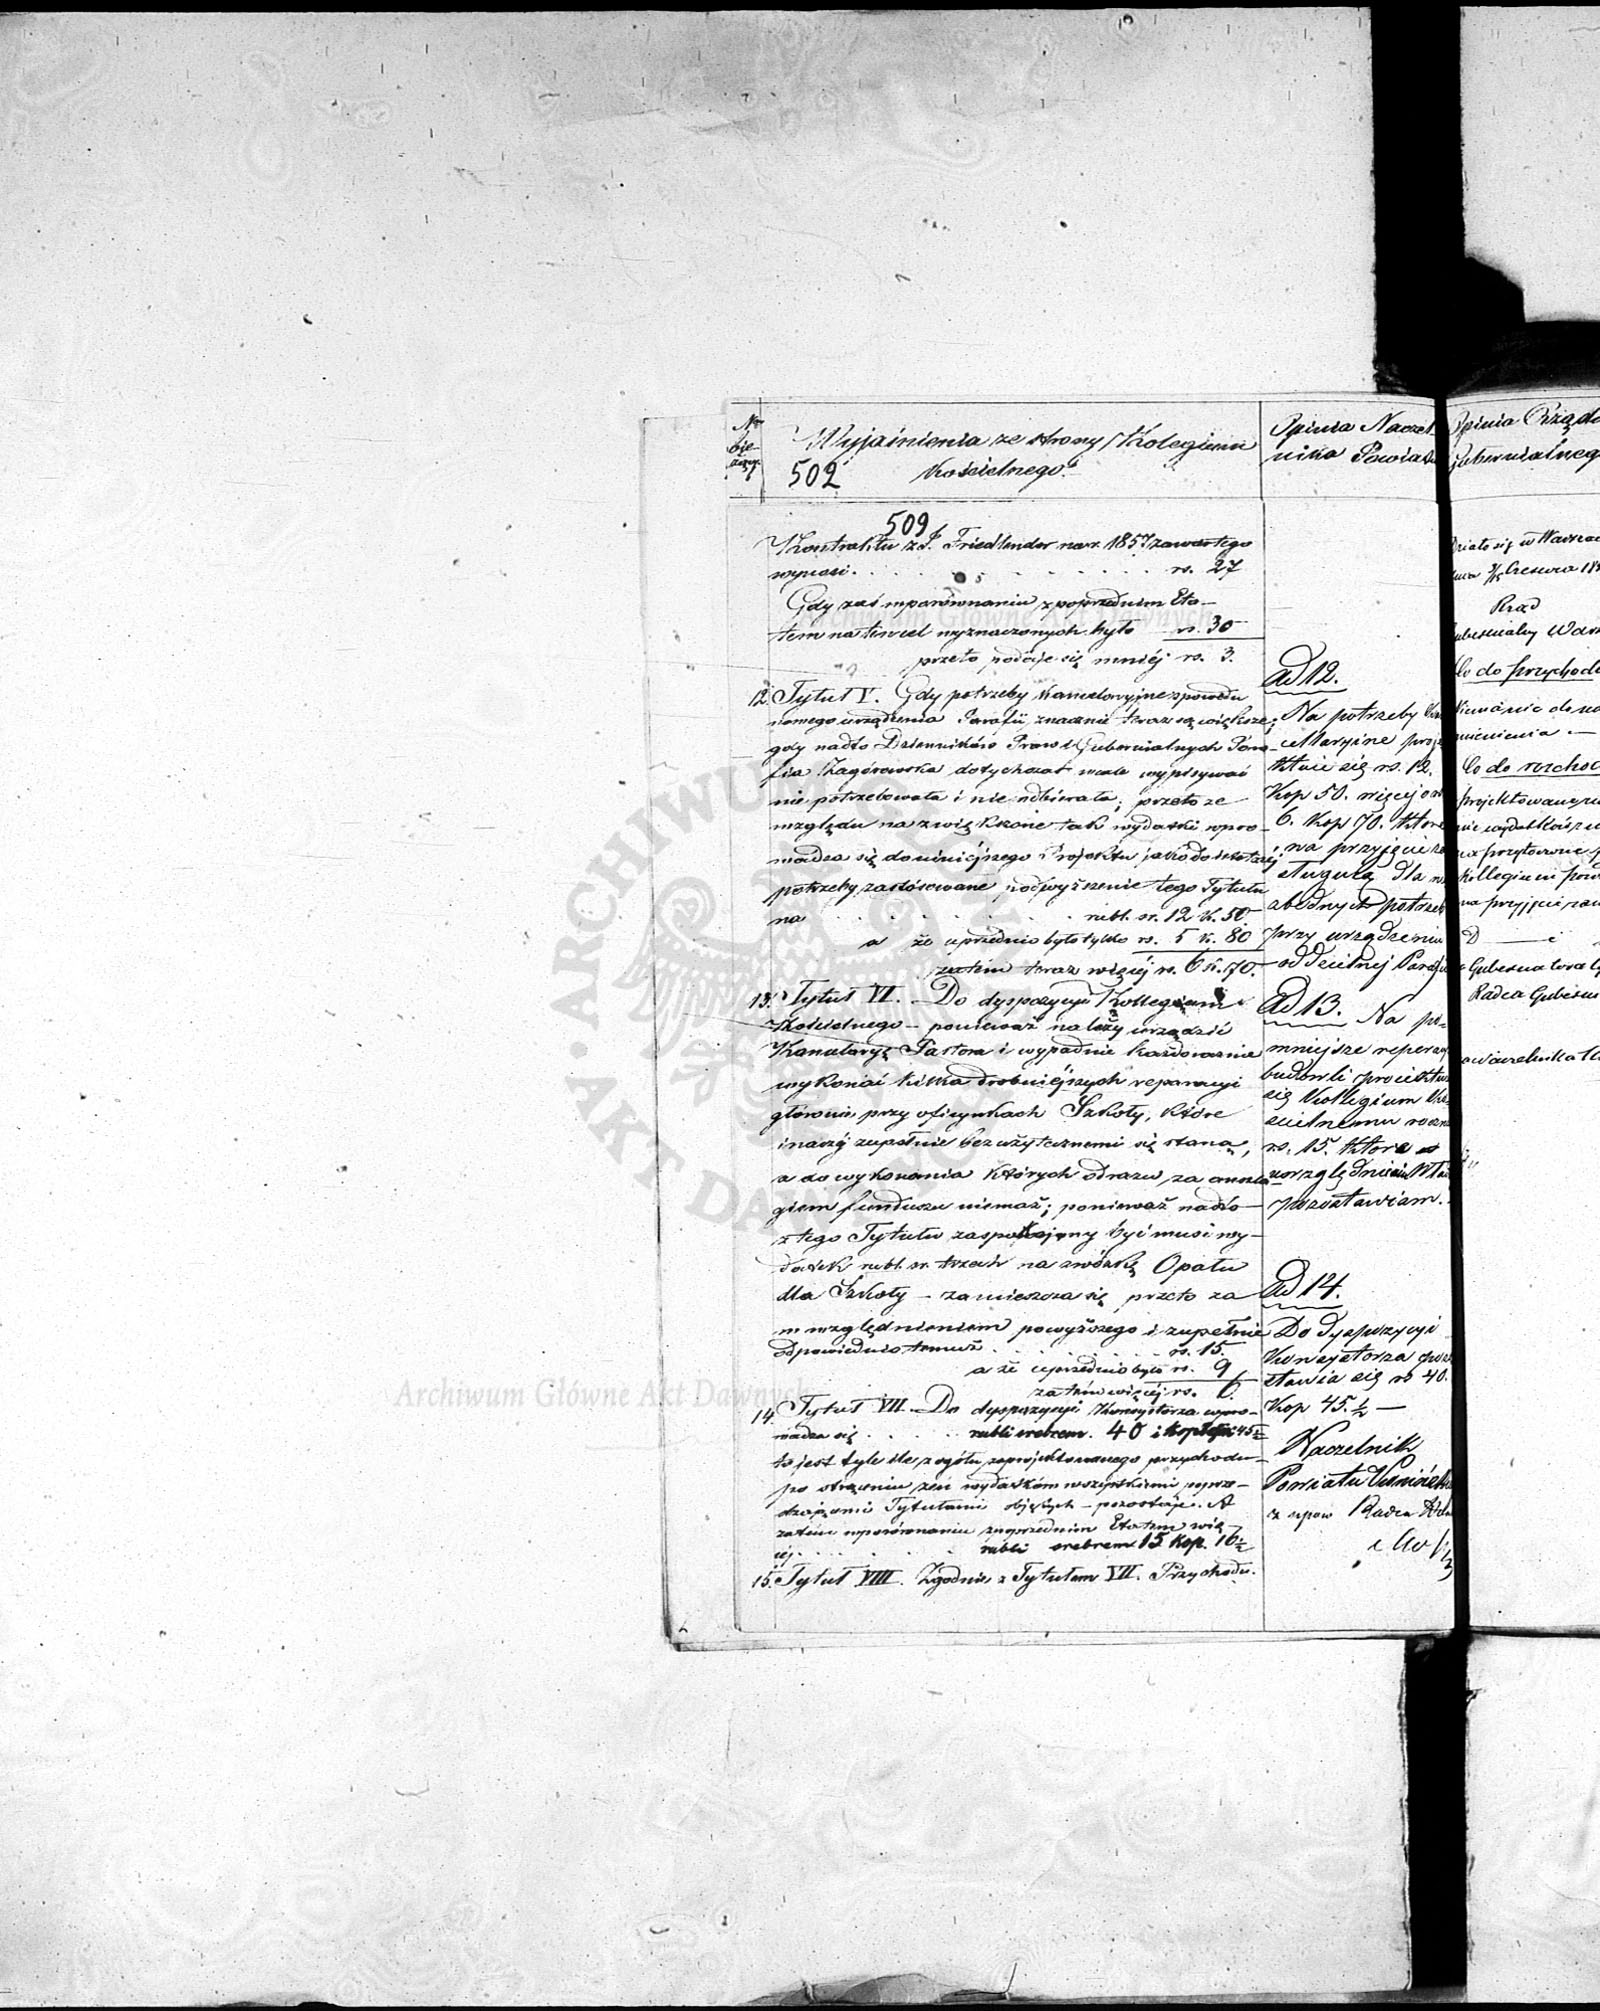 Nro
bie-
żący
Wyjaśnienia ze strony Kolegium
502 Kościelnego.
509
Kontraktu z P. Friedlender na r. 1857 zawartego
wynosi . . . . . . . . rs. 27
Gdy zaś w porównaniu z poprzednim Eta-
tem na ten cel wyznaczonych było rs. 30
przeto podaje się mniéj rs. 3.
12. Tytuł V. Gdy potrzeby kancelaryjne z powodu
nowego urządzenia Parafii znacznie teraz są większe,
gdy nadto Dzienników Praw i Gubernialnych Para-
fia Zagórowska dotychczas wcale wypisywać
nie potrzebowała i nie odbierała; przeto ze
względu na zwiększone tak wydatki wpro-
wadza się do niniejszego Projektu jako do istotnej
potrzeby zastósowane podwyższenie tego Tytułu
na . . . . . . . rubl. sr. 12 k. 50
a że uprzednio było tylko rs. 5 k. 80
zatém teraz więcéj rs. 6 k. 70.
13. Tytuł VI. Do dyspozycyi Kollegium
Kościelnego - ponieważ należy urządzić
Kancelaryę Pastora i wypadnie każdorocznie
wykonać kilka drobniéjszych reparacyi
głównie przy oficynkach Szkoły, które
inaczéj zupełnie bezużytecznemi się staną,
a do wykonania których odrazu, za anszla-
giem funduszu niemasz; ponieważ nadto
z tego Tytułu zaspokojony być musi wy-
datek rubl. sr. trzech na zwózkę Opału
dla Szkoły - zamieszcza się przeto za
uwzględnieniem powyższego i zupełnie
odpowiednio temuż . . . . . rs. 15.
a że uprzednio było rs. 9
zatém więcéj rs. 6.
14. Tytuł VII. Do dyspozycyi Konsystorza wpro-
wadza się . . . . . rubli srebrem 40 i kopiejek 45½
to jest tyle ile z ogółu zaprojektowanego przychodu
po strąceniu zeń wydatków wszystkiemi poprze-
dzającemi Tytułami objętych - pozostaje. A
zatém w porównaniu z uprzednim Etatem wię-
céj . . . . . rubli srebrem 15 kop. 16½
15. Tytuł VIII. Zgodnie z Tytułem VII. Przychodu.
Opinia Naczel-
nika Powiatu
ad 12.
Na potrzeby
cellaryjne
ktuie się rs. 12.
kop 50. więcej o rs
6. kop 70. które
na przyjęcie za
sługują dla
potrzeb
przy urządzeniu
oddzielnej Parafii
ad 13. Na po-
mniejsze reperacye
budowli projektuie
się Kollegium Ko-
ścielnemu
rs. 15. które
uwzględnienia
pozostawiam.
ad 14.
Do dyspozycyi
Konsystorza
stawia się rs 40.
Kop 45.½ —
Naczelnik
Powiatu
Radca
Opinia Rządu
Gubernialnego
Działo się w Warszawie
Rząd
Co do przychodu
mienienia. —
Co do rozchodu
Kollegium
Gubernatora
Radca
Archiwum Główne Akt Dawnych
ARCHIWUM
AKT DAWNYCH
Archiwum Główne Akt Dawnych